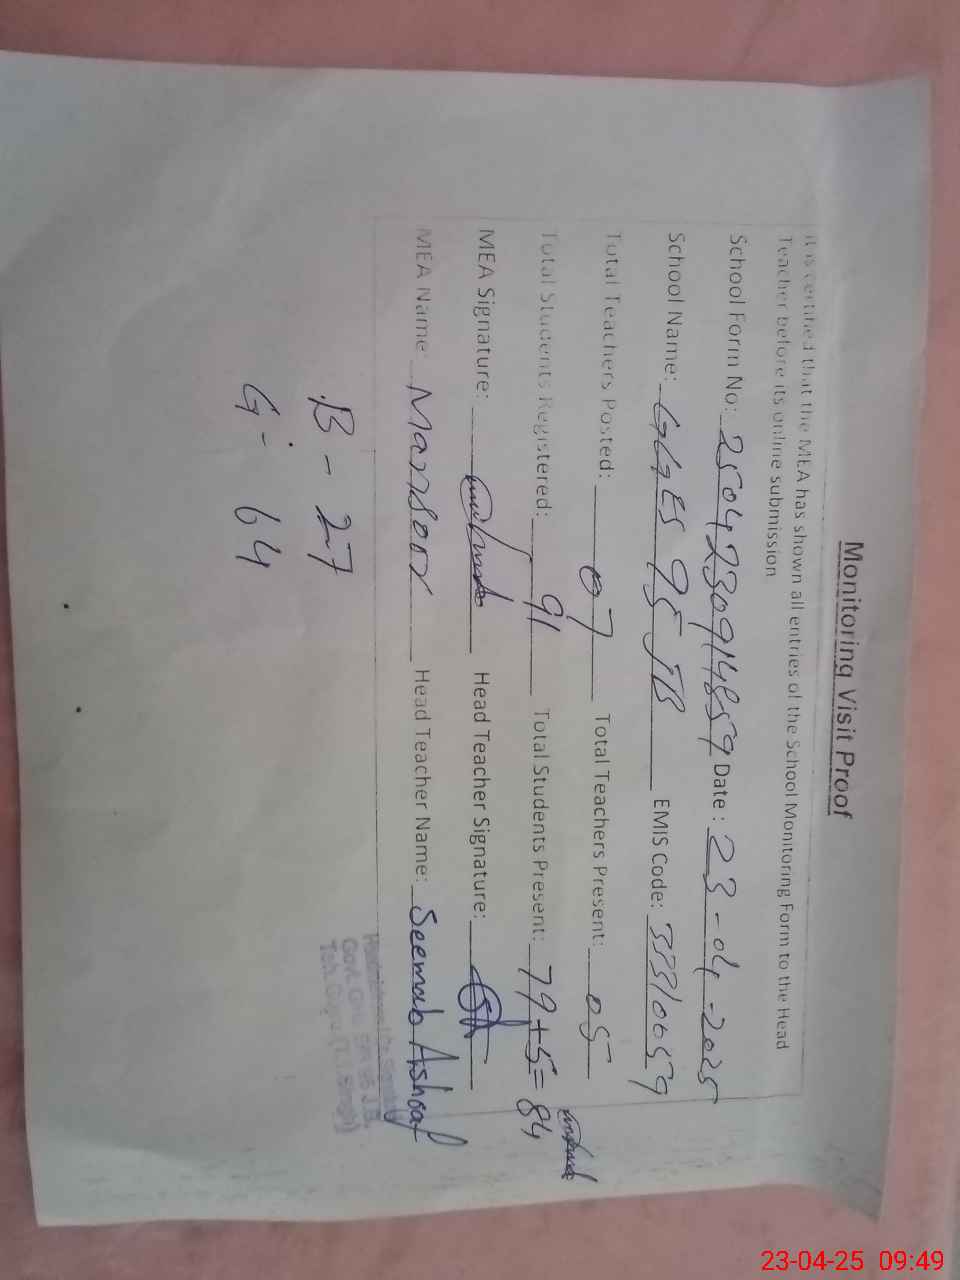 Monitoring Visit Proof
It is certified that the MEA has shown all entries of the School Monitoring Form to the Head
Teacher before its online submission
School Form No: 25042309114859 Date : 23-04-2025
School Name: GGES 95 JB EMIS Code: 33310059
Total Teachers Posted: 07 Total Teachers Present: 05
Total Students Registered: 91 Total Students Present: 79+5= 84
MEA Signature: Head Teacher Signature:
MEA Name: Mansoor Head Teacher Name: Seemab Ashraf
B - 27
G - 64
23-04-25 09:49